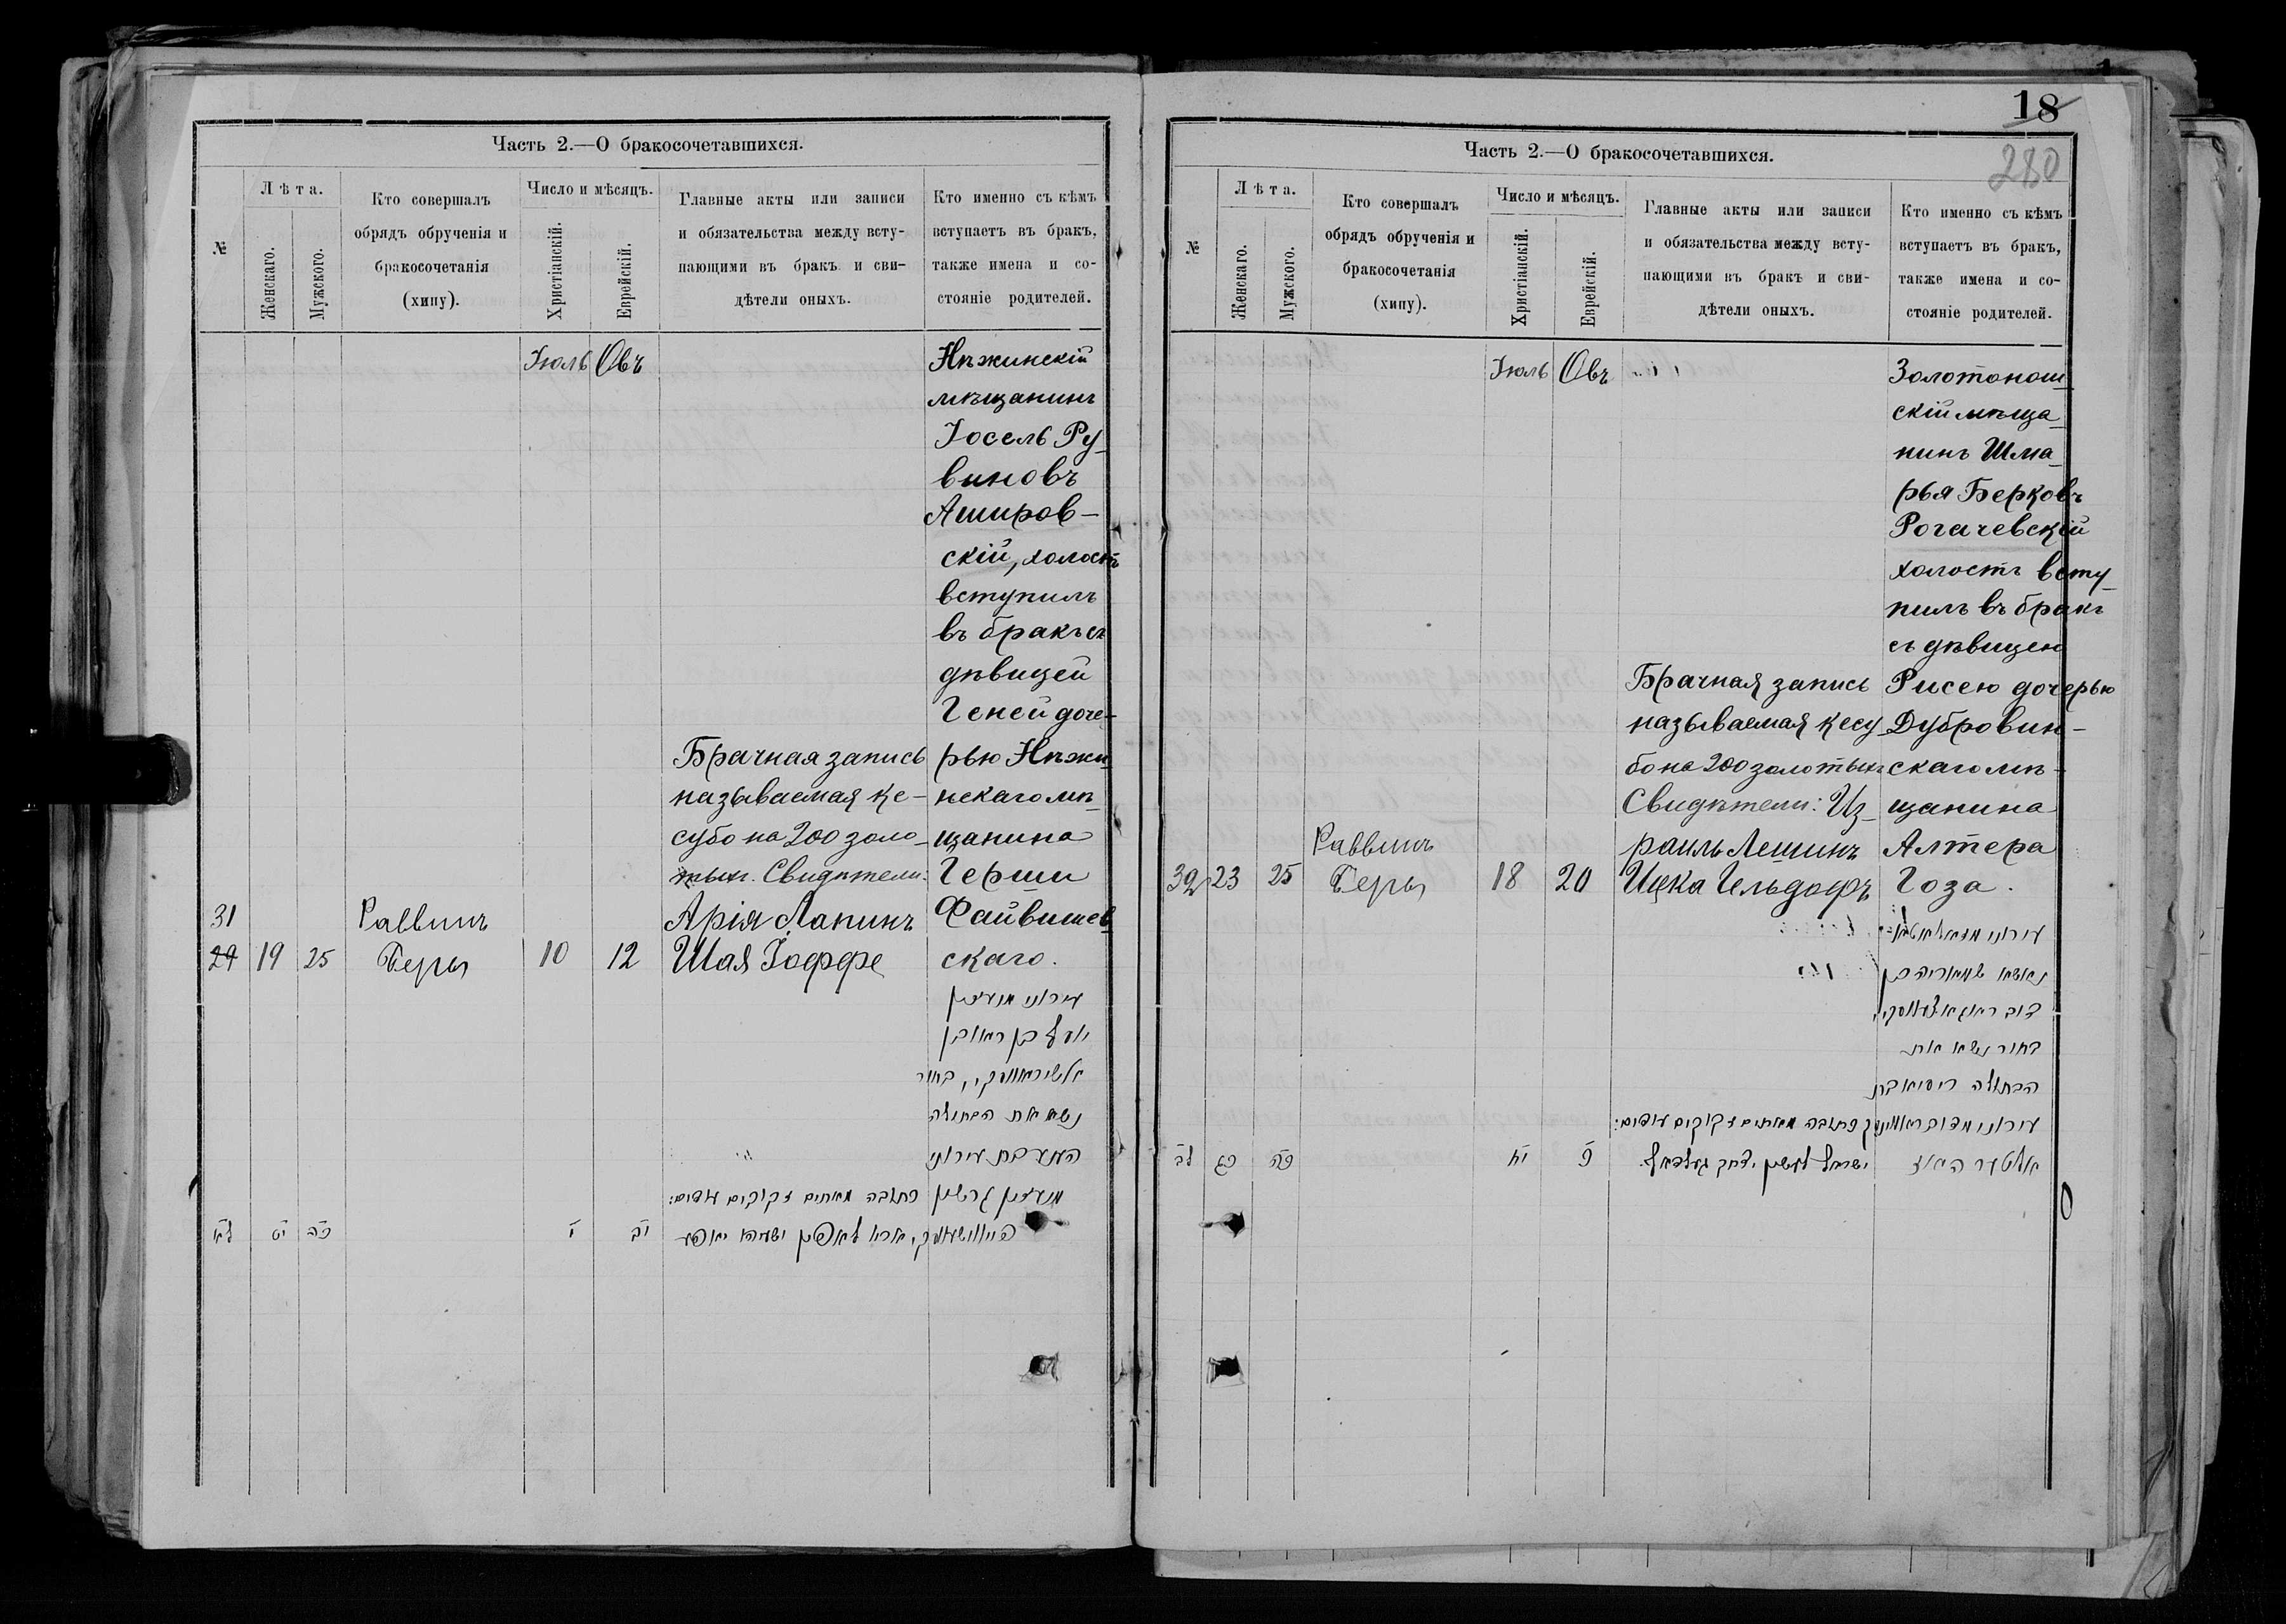 Часть 2.—О бракосочетавшихся.
№
Лѣта.
Женскаго.
Мужскаго.
Кто совершалъ
обрядъ обрученія и
бракосочетанія
(хипу).
Число и мѣсяцъ.
Христіанскій.
Еврейскій.
Главные акты или записи
и обязательства между всту-
пающими въ бракъ и сви-
дѣтели оныхъ.
Кто именно съ кѣмъ
вступаетъ въ бракъ,
также имена и со-
стояніе родителей.
Іюль Овъ
31
29 19 25
Раввинъ
10 12
Брачная запись
называемая ке-
субо на 200 золо-
тыхъ. Свидѣтели:
Арія Лапинъ
Шая Іоффе
Нѣжинскій
мѣщанинъ
Іосель Ру-
виновъ
Аширов-
скій, холостъ
вступилъ
въ бракъ съ
дѣвицей
Геней доче-
рью Нѣжи-
нскаго мѣ-
щанина
Герши
Файвишев
скаго.
בחור
נשא את הבתולה
כתובה מאתים זקוקים
לא יט כה י יב
18
280
Часть 2.—О бракосочетавшихся.
№
Лѣта.
Женскаго.
Мужскаго.
Кто совершалъ
обрядъ обрученія и
бракосочетанія
(хипу).
Число и мѣсяцъ.
Христіанскій.
Еврейскій.
Главные акты или записи
и обязательства между всту-
пающими въ бракъ и сви-
дѣтели оныхъ.
Кто именно съ кѣмъ
вступаетъ въ бракъ,
также имена и со-
стояніе родителей.
Іюль Овъ
32 23 25
Раввинъ
18 20
Брачная запись
называемая кесу-
бо на 200 золотыхъ
Свидѣтели: Из-
раиль Лешинъ
Ицка Гельдофъ
Золотонош
скій мѣща-
нинъ Шма-
рья Берковъ
Рогачевскій
холостъ всту-
пилъ въ бракъ
съ дѣвицею
Рисею дочерью
Дубровин-
скаго мѣ-
щанина
Алтера
Гоза.
בחור נשא את
הבתולה
כתובה מאתים זקוקים
לב כג כה יח כ